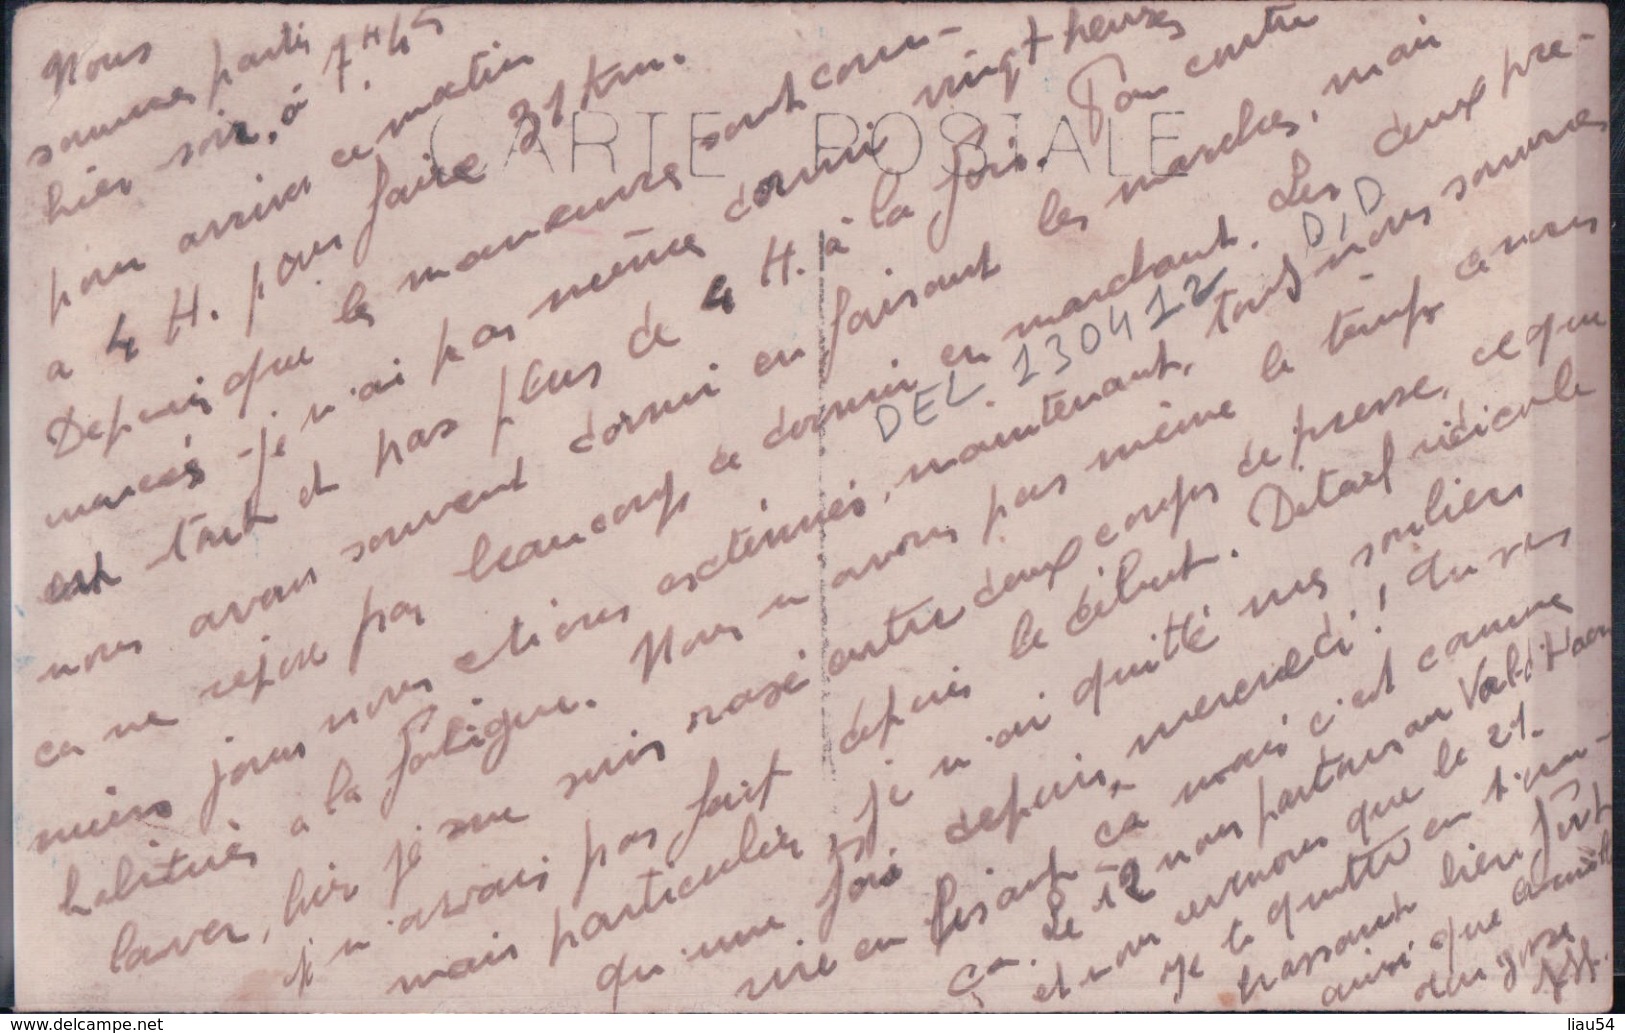 CARTE POSTALE
Nous
sommes partis
hier soir, à 7H45
pour arriver ce matin
a 4 H. pour faire 31 km.
Depuis que les manœuvres sont com-
mencés je n'ai pas même dormi vingt heures
en tout et pas plus de 4 H. à la fois. Par contre
nous avons souvent dormi en faisant les marches, mais
ça ne repose pas beaucoup de dormir en marchant. Les deux pre-
miers jours nous etions exténués, maintenant, tous nous sommes
habitués a la fatigue. Nous n'avons pas même le temps de nous
laver, hier je me suis rasé entre deux coups de presse, ce que
je n'avais pas fait depuis le début. Détail ridicule
mais particulier, je n'ai quitté mes souliers
qu'une fois depuis mercredi! Tu vas
rire en lisant ça mais c'est comme
ça. Le 12 nous partons au Valdahon
et nous revenons que le 21.
Je te quitte en t'em-
brassant bien fort
ainsi que
Aff.
DEL 130412 D,D
liau54
www.delcampe.net